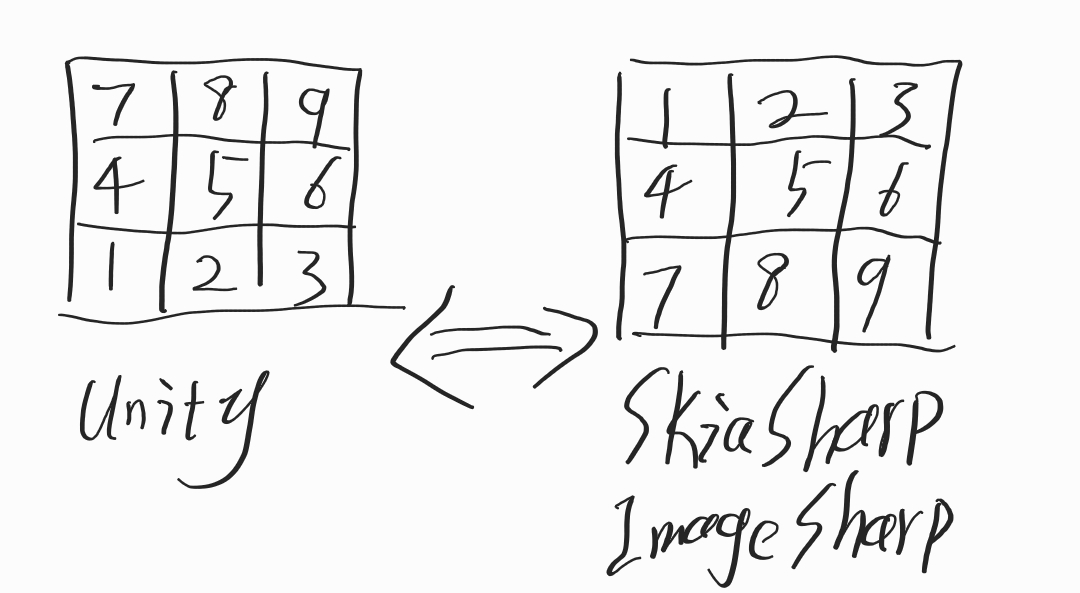 7 8 9
4 5 6
1 2 3
Unity
1 2 3
4 5 6
7 8 9
SkiaSharp
ImageSharp